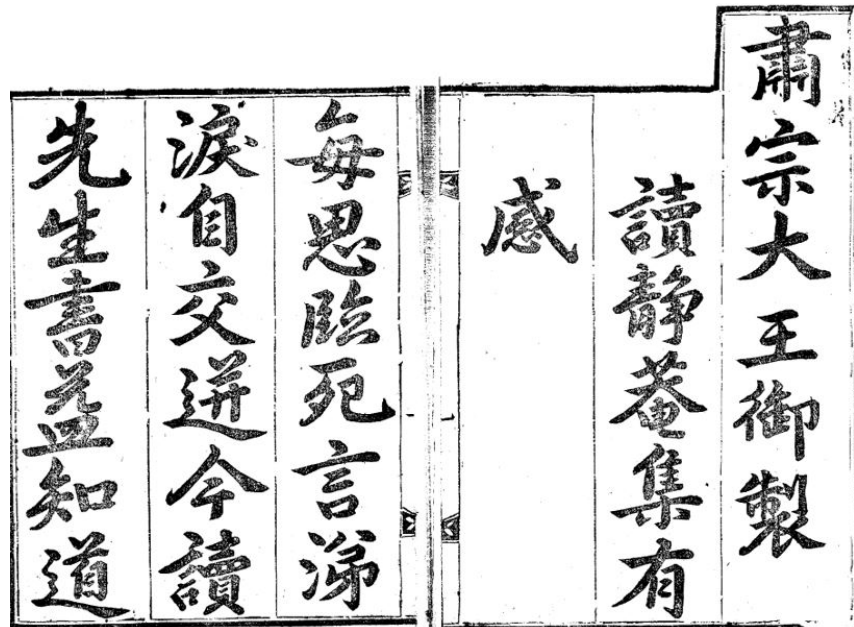 肅宗大王御製
讀靜菴集有
感
每思臨死言涕
淚自交迸今讀
先生書益知道